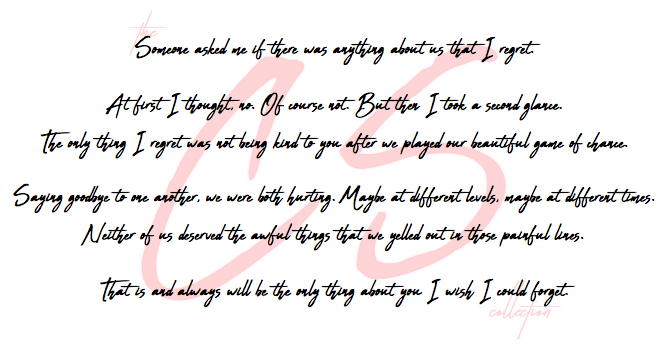 the
Someone asked me if there was anything about us that I regret.
At first I thought, no. Of course not. But then I took a second glance.
The only thing I regret was not being kind to you after we played our beautiful game of chance.
Saying goodbye to one another, we were both hurting. Maybe at different levels, maybe at different times.
Neither of us deserved the awful things that we yelled out in those painful lines.
That is and always will be the only thing about you I wish I could forget.
CS
collection